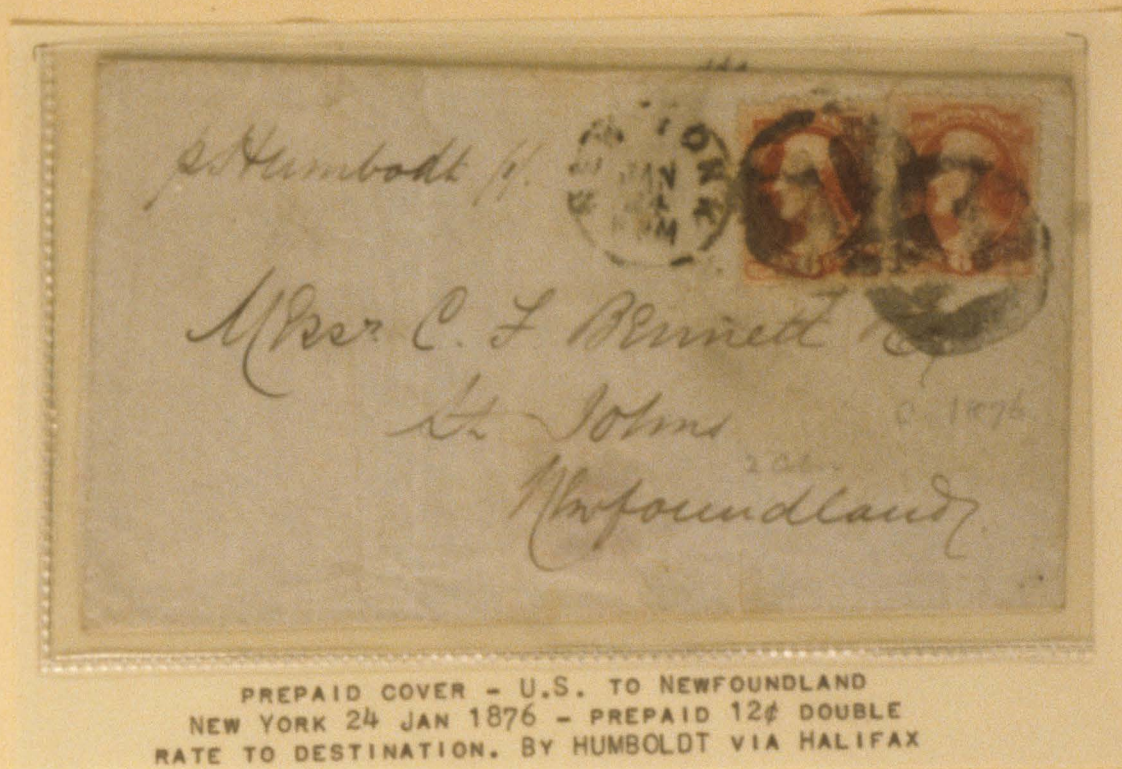 p Humbodt
NEW YORK
JAN
24
PM
Messr. C. F. Bennett
St Johns
Newfoundland
1876
PREPAID COVER - U.S. TO NEWFOUNDLAND
NEW YORK 24 JAN 1876 - PREPAID 12¢ DOUBLE
RATE TO DESTINATION. BY HUMBOLDT VIA HALIFAX